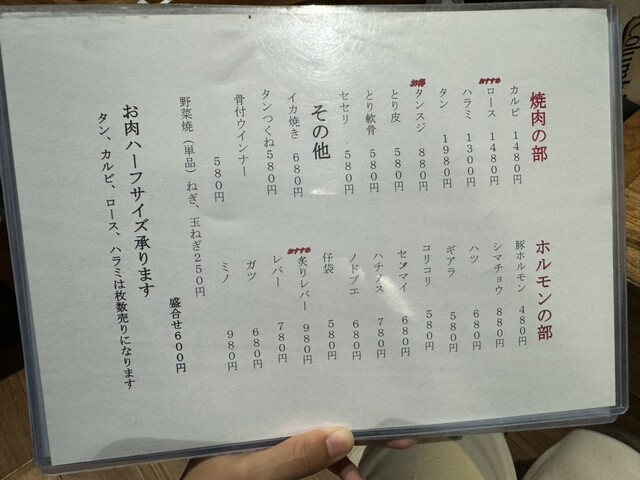 焼肉の部
カルビ 1480円
おすすめ
ロース 1480円
ハラミ 1300円
タン 1980円
お得
タンスジ 880円
とり皮 580円
とり軟骨 580円
セセリ 580円
その他
イカ焼き 680円
タンつくね580円
骨付ウインナー
580円
野菜焼(単品)ねぎ、玉ねぎ250円
盛合せ600円
ホルモンの部
豚ホルモン 480円
シマチョウ 880円
ハツ 680円
ギアラ 580円
コリコリ 580円
センマイ 680円
ハチノス 780円
ノドブエ 680円
仔袋 580円
おすすめ
炙りレバー 980円
レバー 780円
ガツ 680円
ミノ 980円
お肉ハーフサイズ承ります
タン、カルビ、ロース、ハラミは枚数売りになります